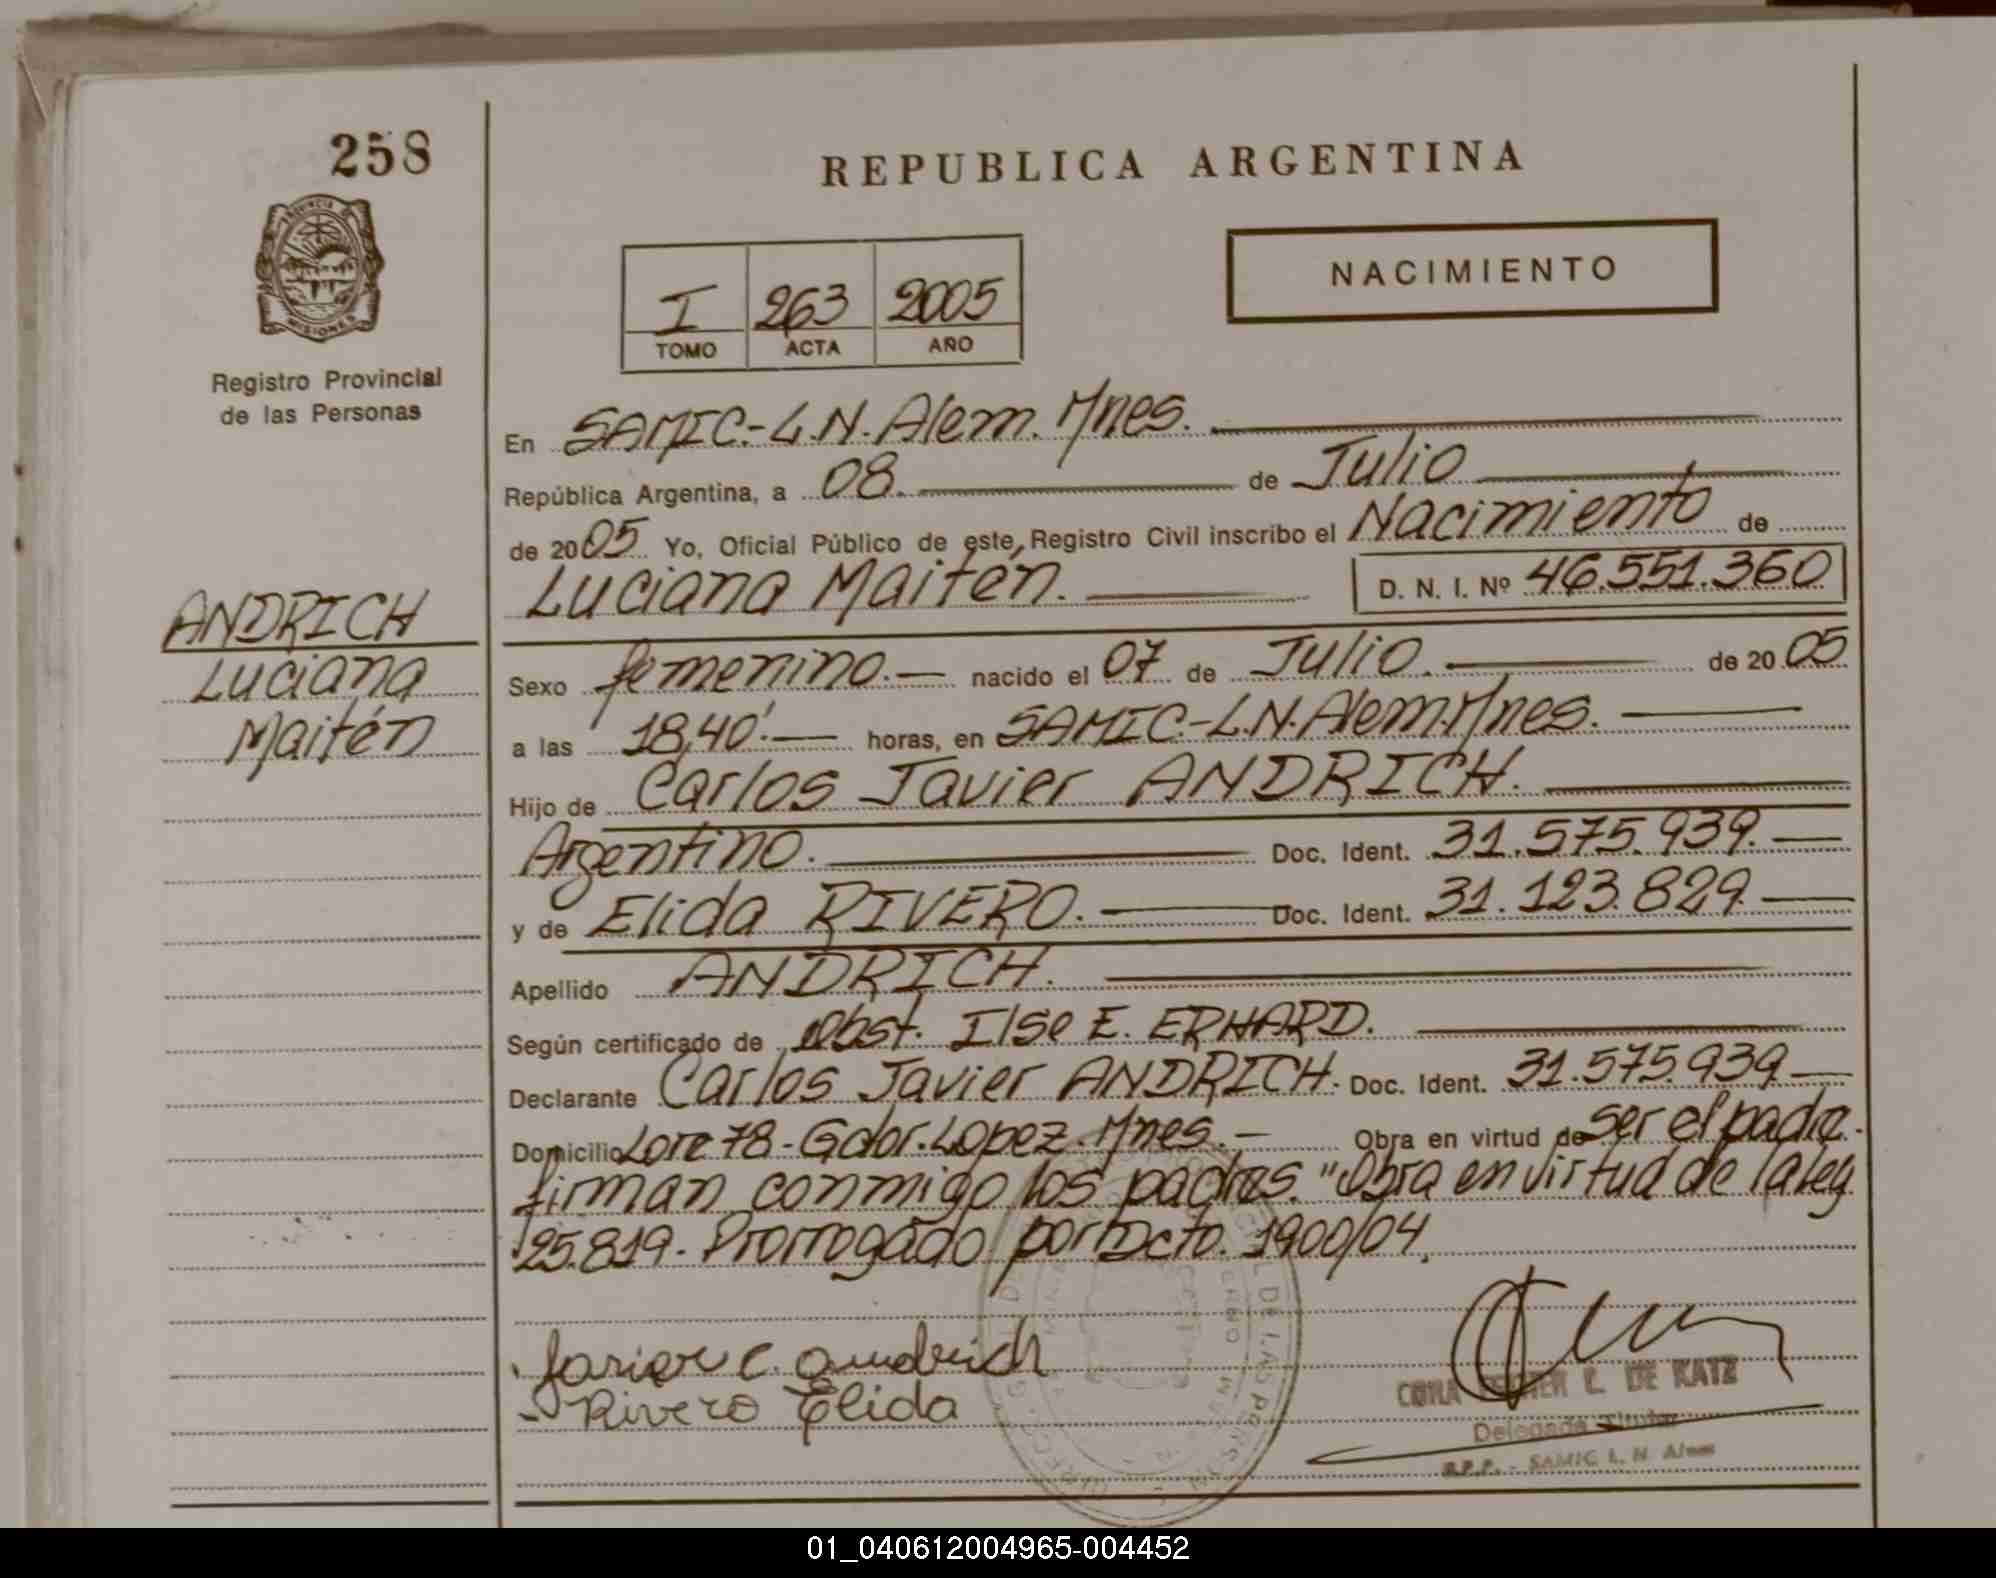 258
PROVINCIA
MISIONES
Registro Provincial
de las Personas
REPUBLICA ARGENTINA
NACIMIENTO
I 263 2005
TOMO ACTA AÑO
ANDRICH
Luciana
Maitén
En SAMIC.-L.N.Alem.Mnes.
República Argentina, a 08. de Julio
de 2005 Yo, Oficial Público de este Registro Civil inscribo el Nacimiento de
Luciana Maitén. D. N. I. Nº 46.551.360
Sexo femenino.- nacido el 07 de Julio. de 2005
a las 18,40'.- horas, en SAMIC.-L.N.Alem.Mnes.
Hijo de Carlos Javier ANDRICH.
Argentino. Doc. Ident. 31.575.939.-
y de Elida RIVERO. Doc. Ident. 31.123.829.-
Apellido ANDRICH.
Según certificado de Obst. Ilse E. ERHARD.
Declarante Carlos Javier ANDRICH. Doc. Ident. 31.575.939-
Domicilio Lote 78-Gdor.Lopez.Mnes.- Obra en virtud de ser el padre.
firman conmigo los padres. "Obra en virtud de la ley
25.819. Prorrogado por Dcto. 1900/04.
Javier C. Andrich
- Rivero Elida
DE KATZ
Delegada Titular
R.P.P. - SAMIC L. N. Alem
01_040612004965-004452